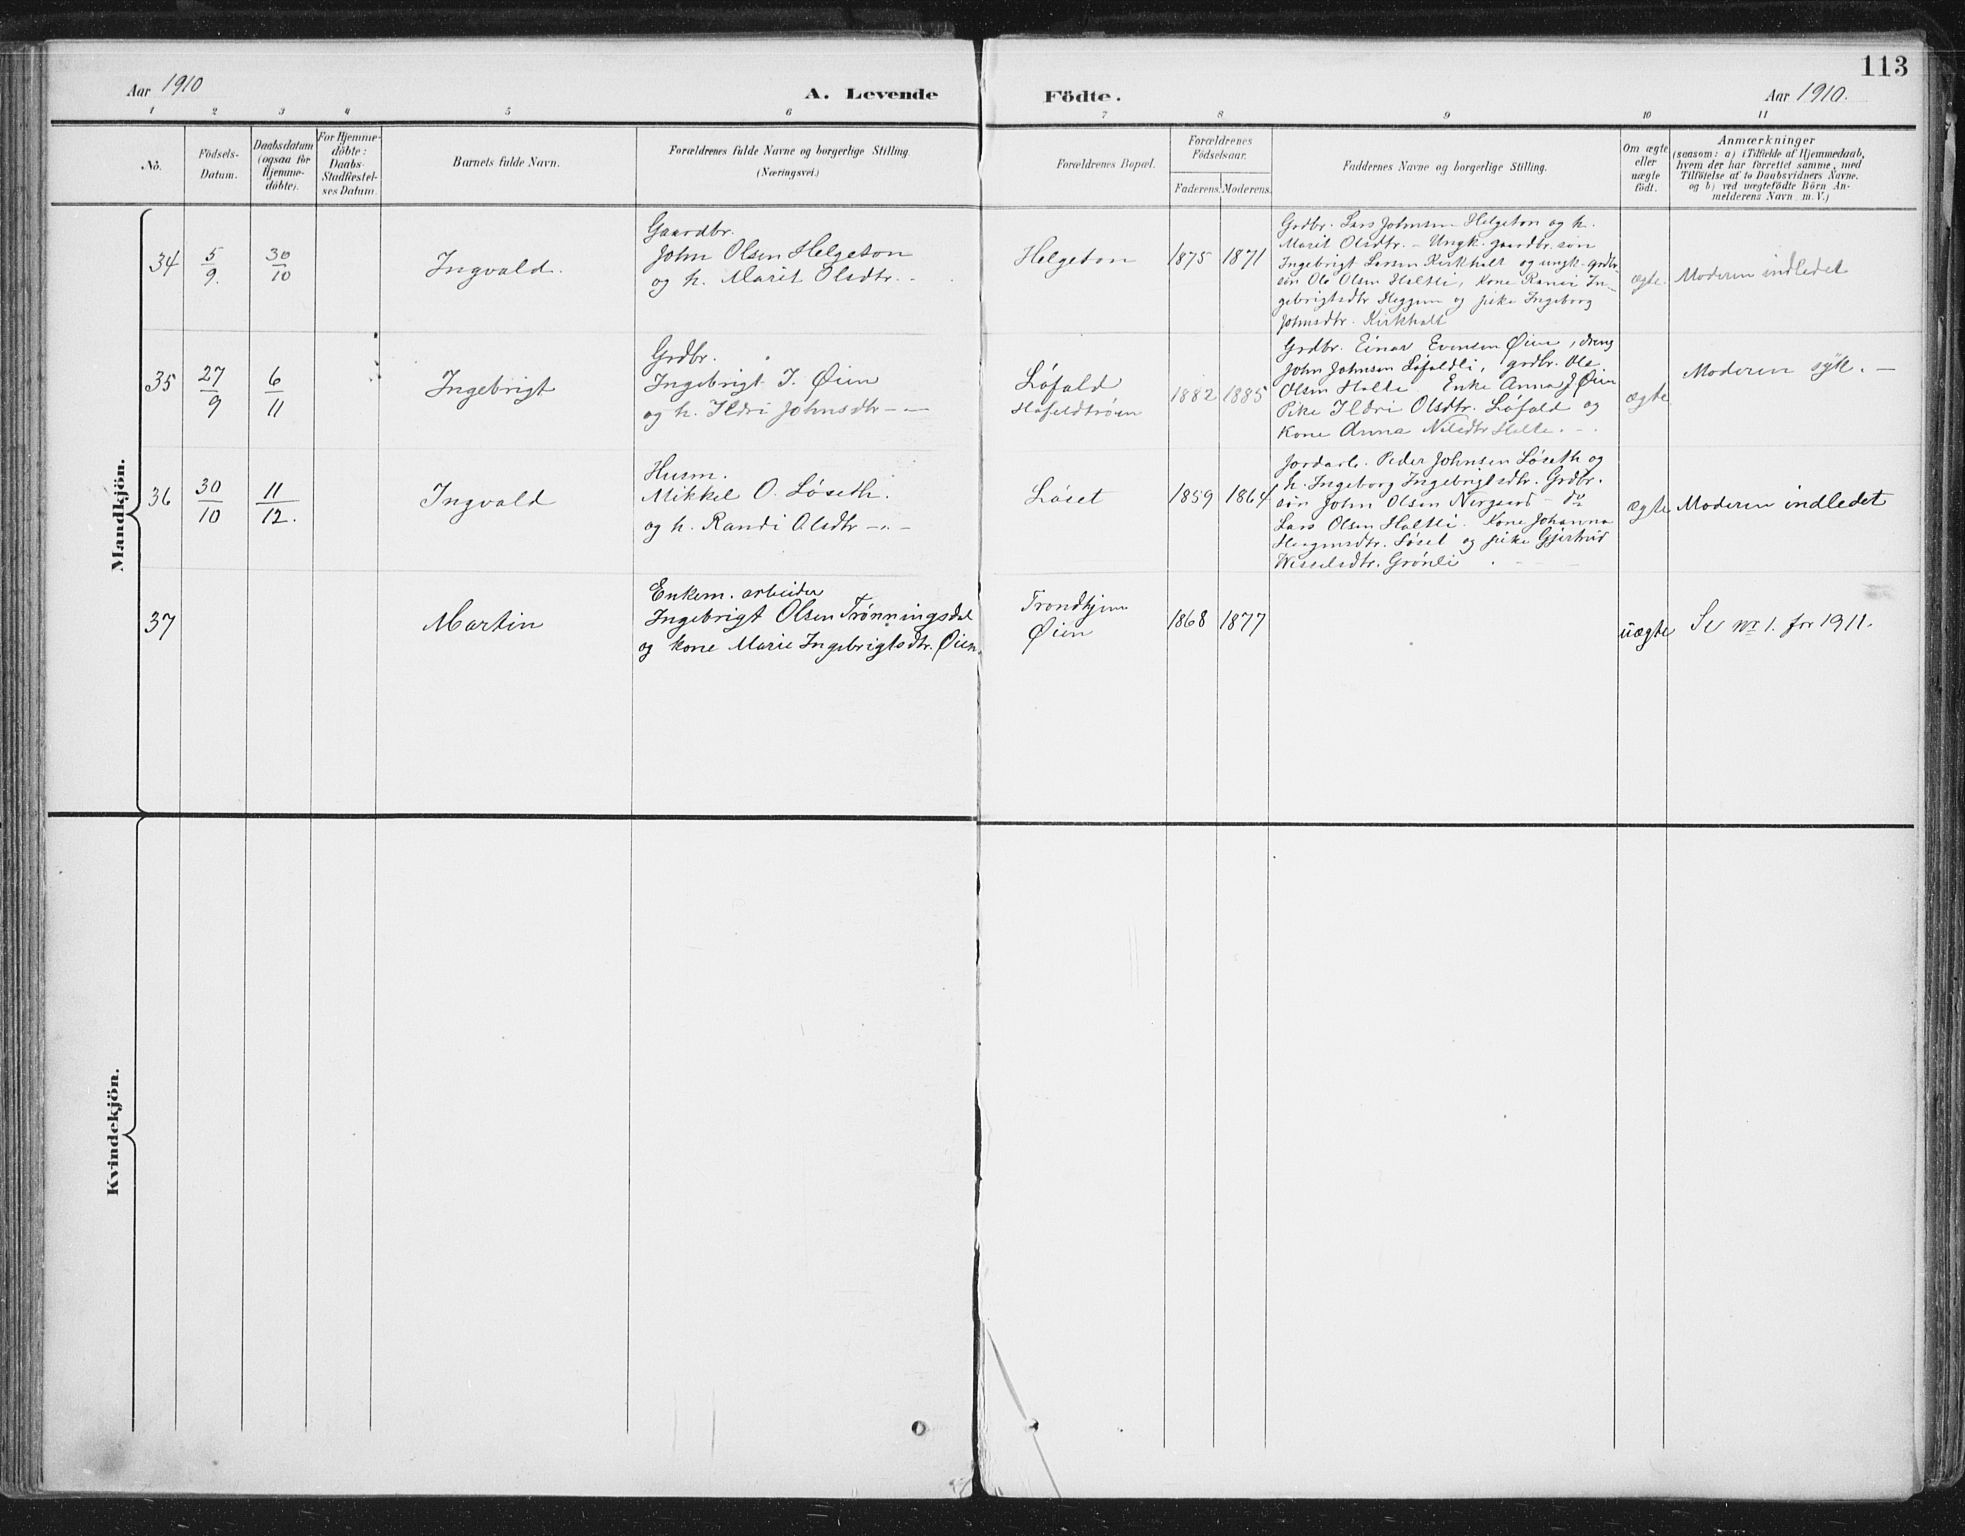 113
Aar 1910
A. Levende
Födte.
Aar 1910.
1 2 3 4 5 6 7 8 9 10 11
No.
Födsels-
Datum.
Daabsdatum
(ogsaa for
Hjemme-
döbte).
For Hjemme-
döbte:
Daabs-
Stadfæstel-
ses Datum.
Barnets fulde Navn.
Forældrenes fulde Navne og borgerlige Stilling.
(Næringsvei.)
Forældrenes Bopæl.
Forældrenes
Födselsaar.
Faderens. Moderens.
Faddernes Navne og borgerlige Stilling.
Om ægte
eller
uægte
födt.
Anmærkninger
(saasom: a) i Tilfælde af Hjemmedaab,
hvem der har forrettet samme, med
Tilföielse af to Daabsvidners Navne.
og b) ved uægtefödte Börn An-
melderens Navn m. V.)
Mandkjön.
34
5/9.
30/10
Ingvald.
Gaardbr.
John Olsen Helgeton
og h. Marit Olsdtr. -
Helgeton
1875 1871
Grdbr. Lars Johnsen Helgeton og h.
Marit Olsdtr. - Ungk. gaardbr.søn
Ingebrigt Larsen Kirkholt og ungk. grdbr.
søn Ole Olsen Holtli, Kone Randi In-
gebrigtsdtr Heggem og pike Ingeborg
Johnsdtr. Kirkholt
ægte.
Moderen indledet
35
27/9
6/11
Ingebrigt
Grdbr.
Ingebrigt J. Øien
og h. Ildri Johnsdtr - " -
Løfald
1882 1885
Grdbr. Einar Evensen Øien, dreng
John Johnsen Løfaldli, grdbr. Ole
Olsen Holte Enke Anna J Øien
Pike Ildri Olsdtr. Løfald og
Kone Anna Nilsdtr Holte. - -
ægte
Moderen syk. -
36
30/10
11/12.
Ingvald
Husm.
Mikkel O. Løseth.
og h. Randi Olsdtr - " -
Løset
1859 1864
Jordarb. Peder Johnsen Løseth og
h. Ingeborg Ingebrigtsdtr. Grdbr.
søn John Olsen Nergaard do
Lars Olsen Holtli. Kone Johanna
Løset og pike Gjertrud
Grønli
ægte
Moderen indledet
37
Martin
Enkem. arbeider
Ingebrigt Olsen Trønningsdal
og kone Marie Ingebrigtsdtr. Øien.
Trondhjem
Øien
1868 1877
uægte
Se No 1. for 1911.
Kvindekjön.